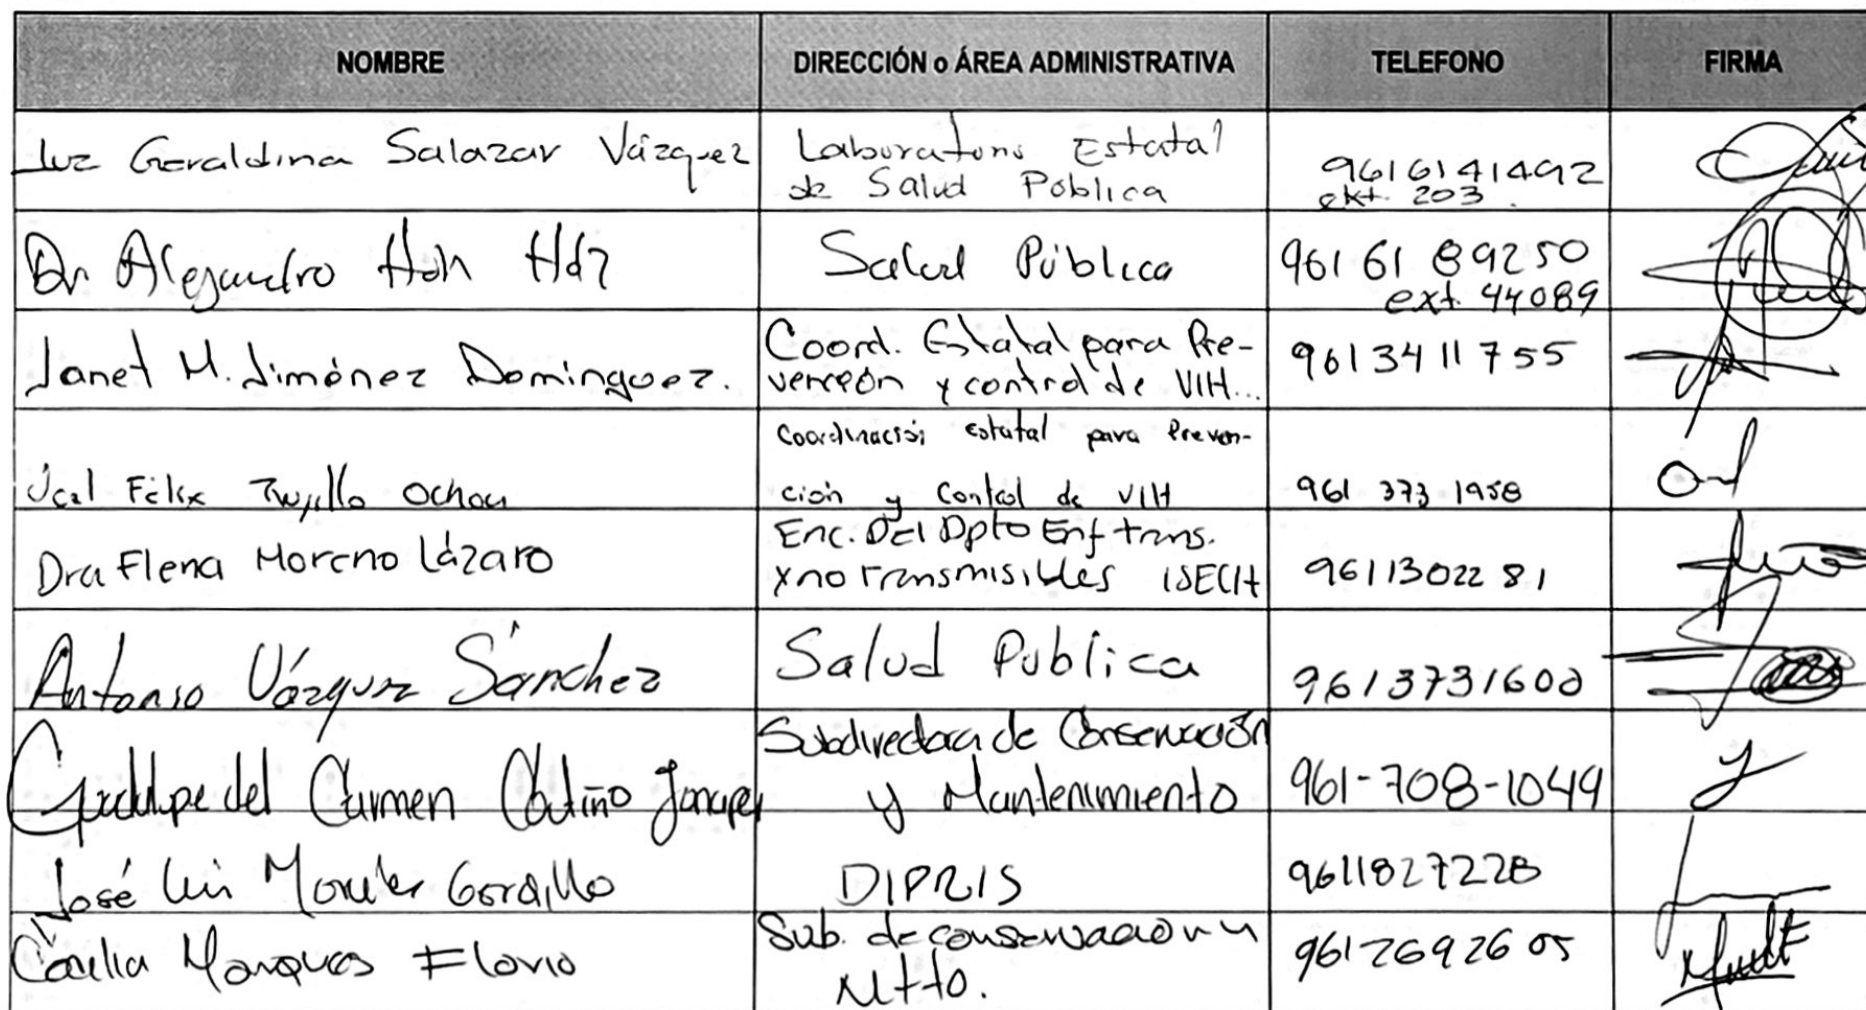 NOMBRE DIRECCIÓN o ÁREA ADMINISTRATIVA TELEFONO FIRMA
Luz Geraldina Salazar Vázquez
Laboratorio Estatal
de Salud Pública
9616141492
ext. 203.
Dr Alejandro Hdz
Salud Pública
961 61 89250
ext. 44089
Janet M. Jiménez Dominguez.
Coord. Estatal para Pre-
vención y control de VIH...
9613411755
Félix Trujillo Ochoa
Coordinación estatal para Preven-
ción y Control de VIH
961 373 1958
Dra Elena Moreno Lázaro
Enc. Del Dpto Enf trans.
y no transmisibles ISECH
9611302281
Antonio Vázquez Sánchez
Salud Publica
9613731600
Guadalupe del Carmen Coutiño
Subdirectora de Conservación
y Mantenimiento
961-708-1049
José Luis Morales Gordillo
DIPRIS
9611827228
Marques Flovio
Sub. de conservacion y
Mtto.
9612692605